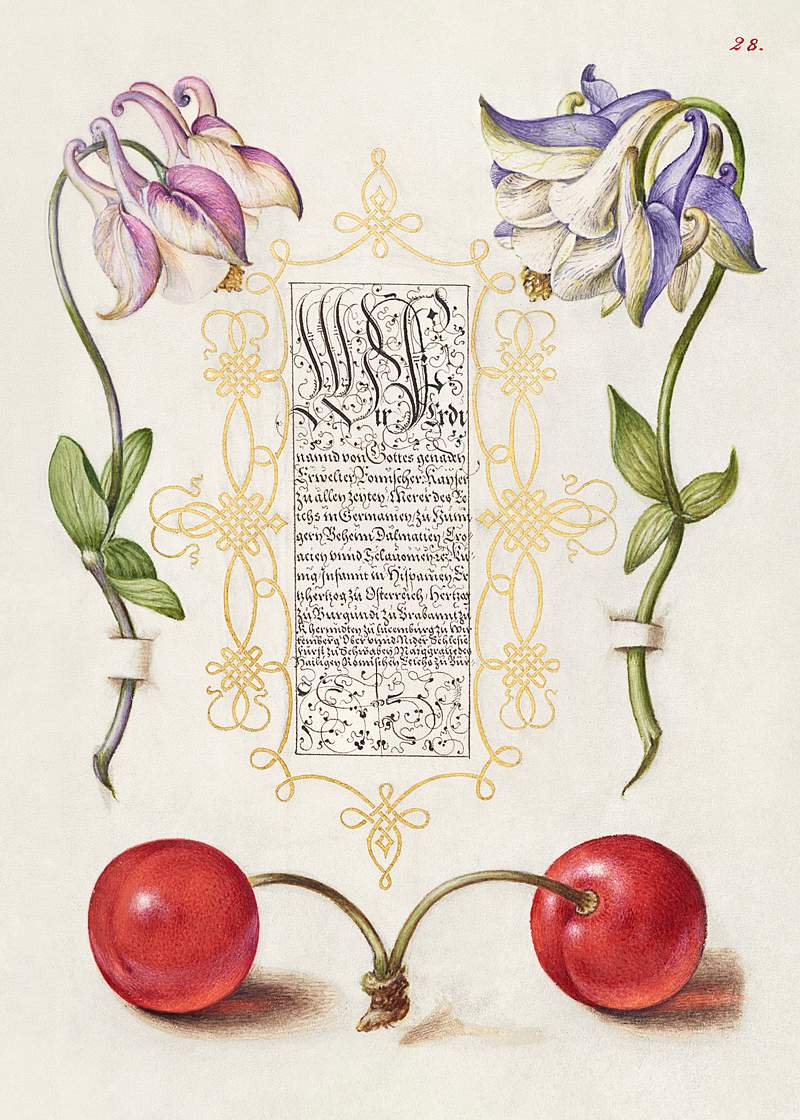 28.
Wir Ferdi
nannd von Gottes genaden
Erwelter Römischer Kayser
zu allen zeyten Merer des Re
ichs in Germanien, zu Hun
gern Behem Dalmatien, Cro
acien vnnd Sclauonien, etc. Kü
nig Infannt in Hispanien, Er
tzhertzog zu Osterreich, Hertzog
zu Burgundi zu Brabannt zu
Kherndten, zu Lucemburg zu Wir
temberg Ober vnnd Nider Schlesie
Fürst zu Schwaben, Marggraue des
Hailigen Römischen Reichs zu Bur